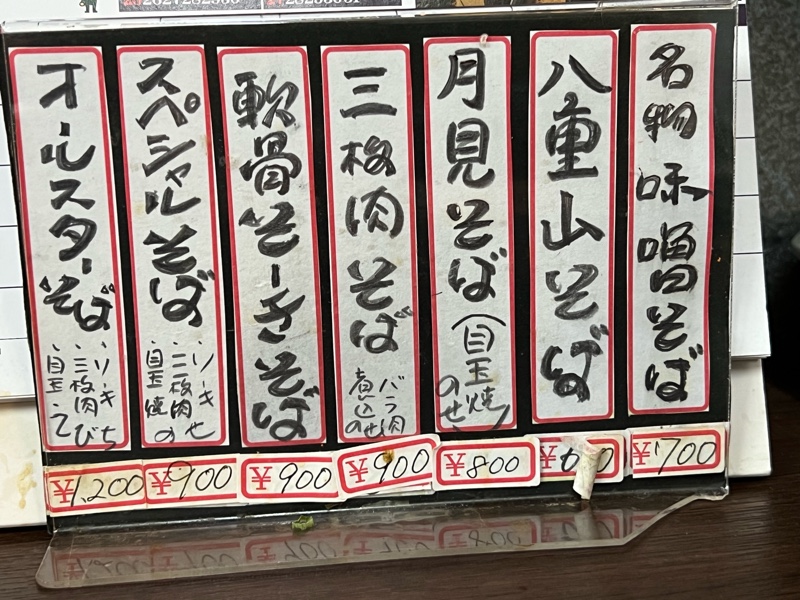 名物味噌そば
¥700
八重山そば
月見そば(目玉焼
のせ)
¥800
三枚肉そば
バラ肉
煮込のせ
¥900
軟骨そーきそば
¥900
スペシャルそば
・ソーキ
・三枚肉の
目玉焼
¥900
オールスターそば
・ソーキ
・三枚肉
・目玉
¥1,200